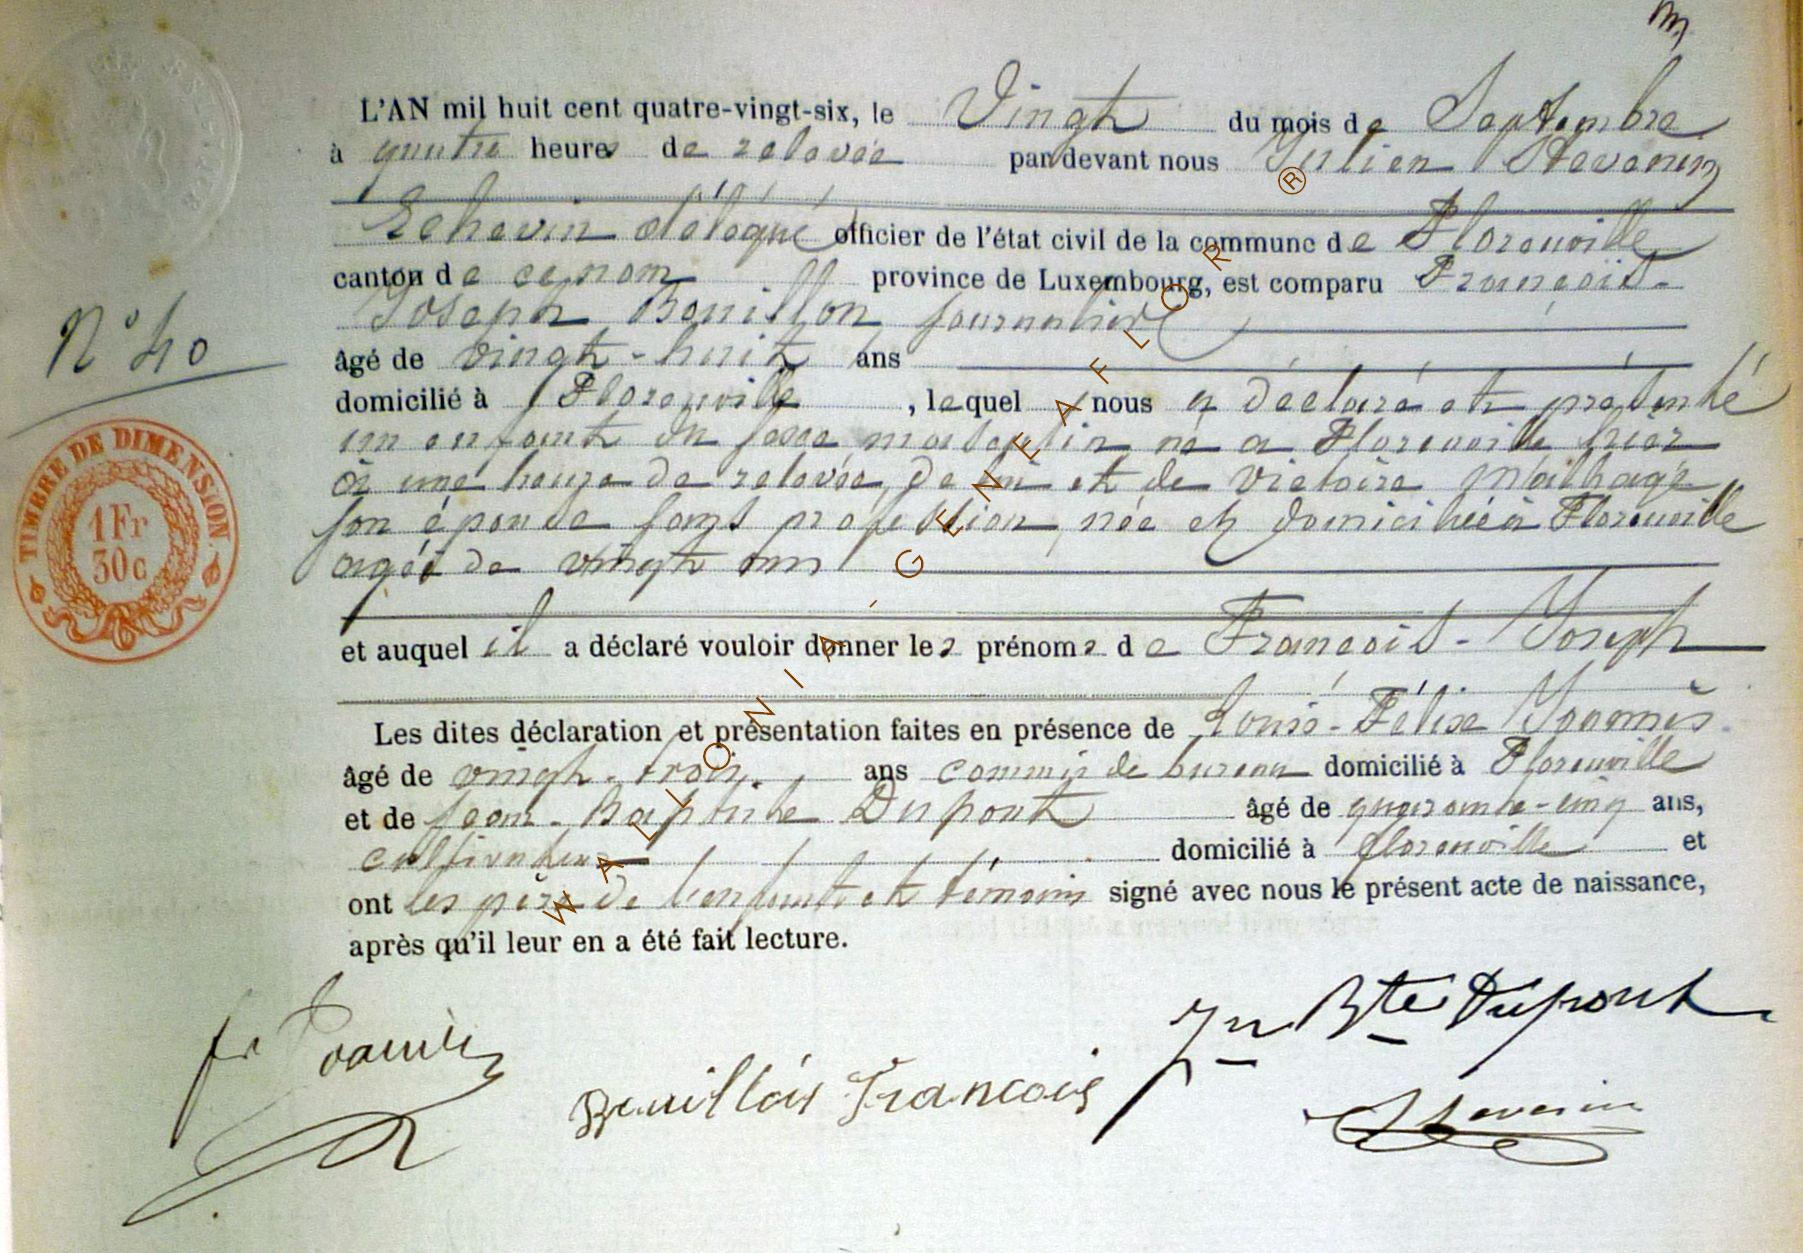 L'AN mil huit cent quatre-vingt-six, le Vingt du mois de Septembre
à quatre heures de relevée par devant nous Julien
Echevin délégué officier de l'état civil de la commune de Florenville
canton de ce nom province de Luxembourg, est comparu François-
Joseph Bouillon journalier
âgé de vingt-huit ans
domicilié à Florenville, lequel nous a déclaré et présenté
un enfant du sexe masculin né à Florenville hier
à une heure de relevée, de lui et de Victoire
son épouse sans profession, née et domiciliée à Florenville
agée de vingt ans
et auquel il a déclaré vouloir donner les prénoms de François-Joseph
Les dites déclaration et présentation faites en présence de Louis-Félix
âgé de vingt-trois ans commis de bureau domicilié à Florenville
et de Jean-Baptiste Dupont âgé de quarante-cinq ans,
cultivateur domicilié à Florenville et
ont les père de l'enfant et témoins signé avec nous le présent acte de naissance,
après qu'il leur en a été fait lecture.
Jn Bte Dupont
François
N° 40
TIMBRE DE DIMENSION
1 Fr
30c
WALLONIA - GENEAFLOR ®